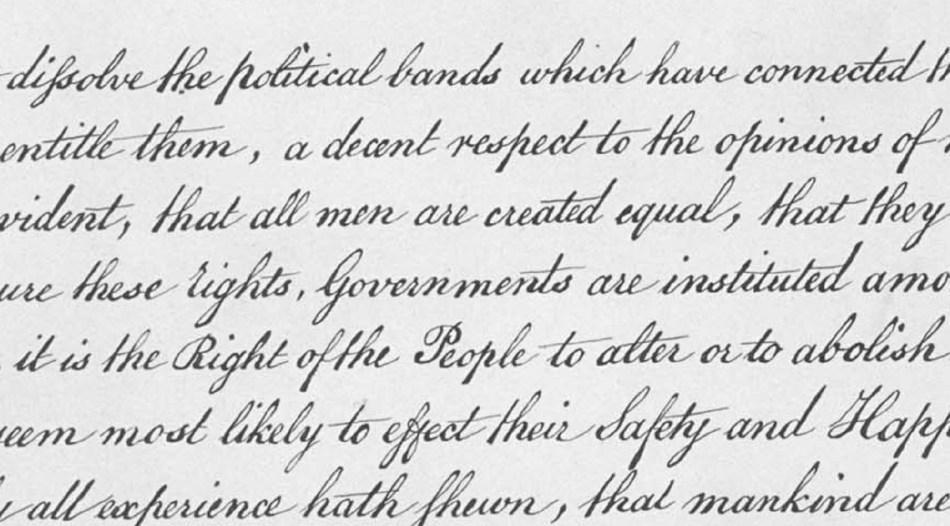 dissolve the political bands which have connected th
entitle them, a decent respect to the opinions of
vident, that all men are created equal, that they
ure these rights, Governments are instituted amo
it is the Right of the People to alter or to abolish
seem most likely to effect their Safety and Happ
all experience hath shewn, that mankind are